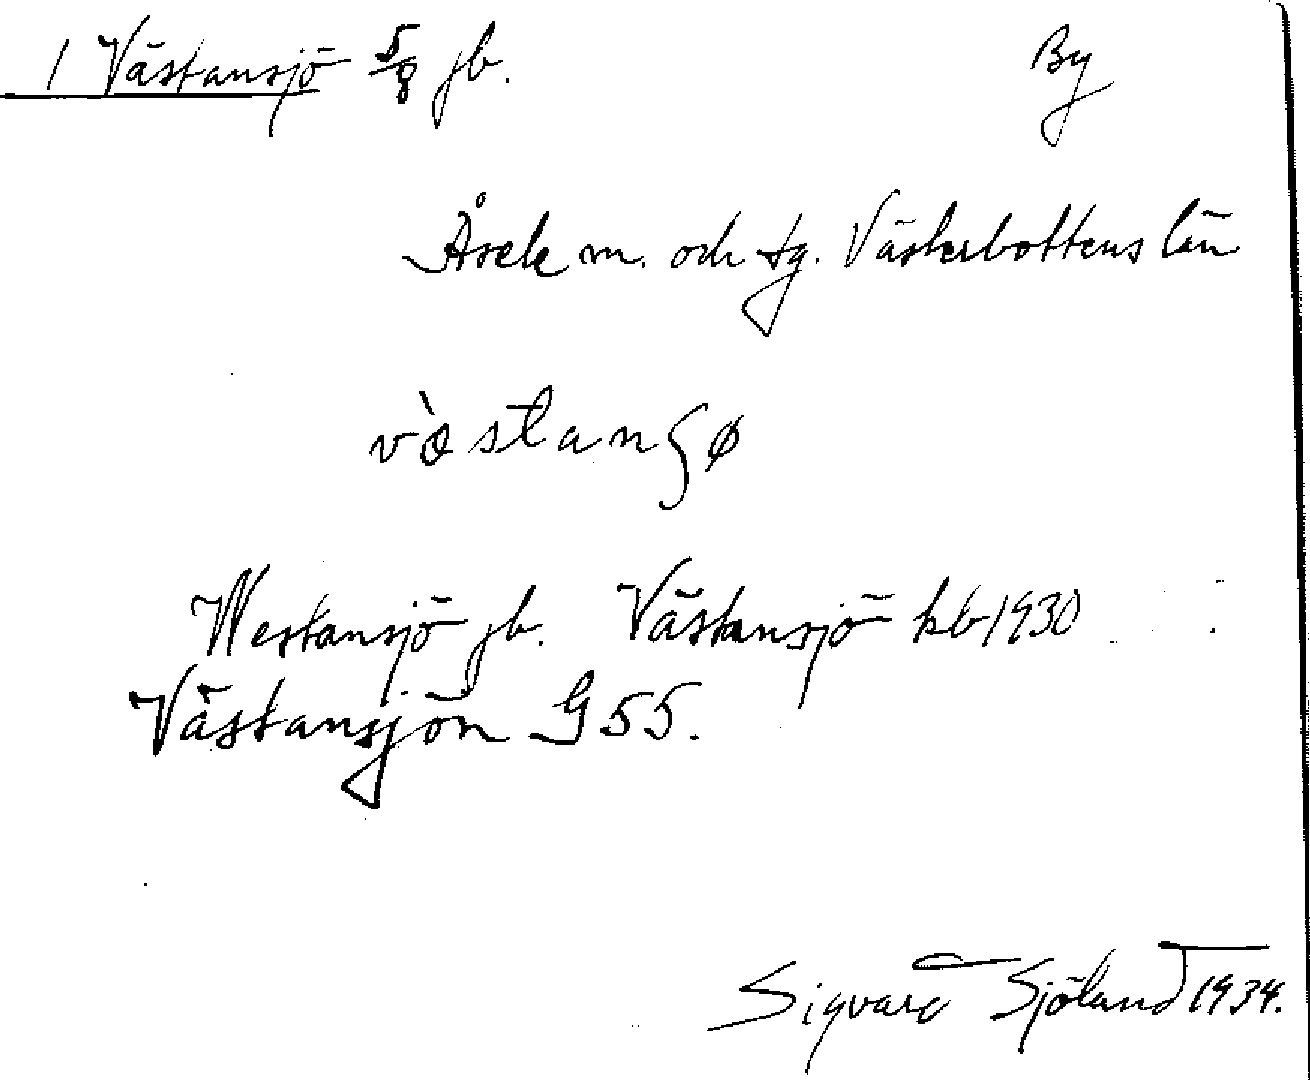 1 Västansjö 5/8 jb. By
Åsele m. och tg. Västerbottens län
vὰstanʃø
Westansjö jb. Västansjö kb 1930
Västansjön G 55.
Sigvard Sjöland 1934.